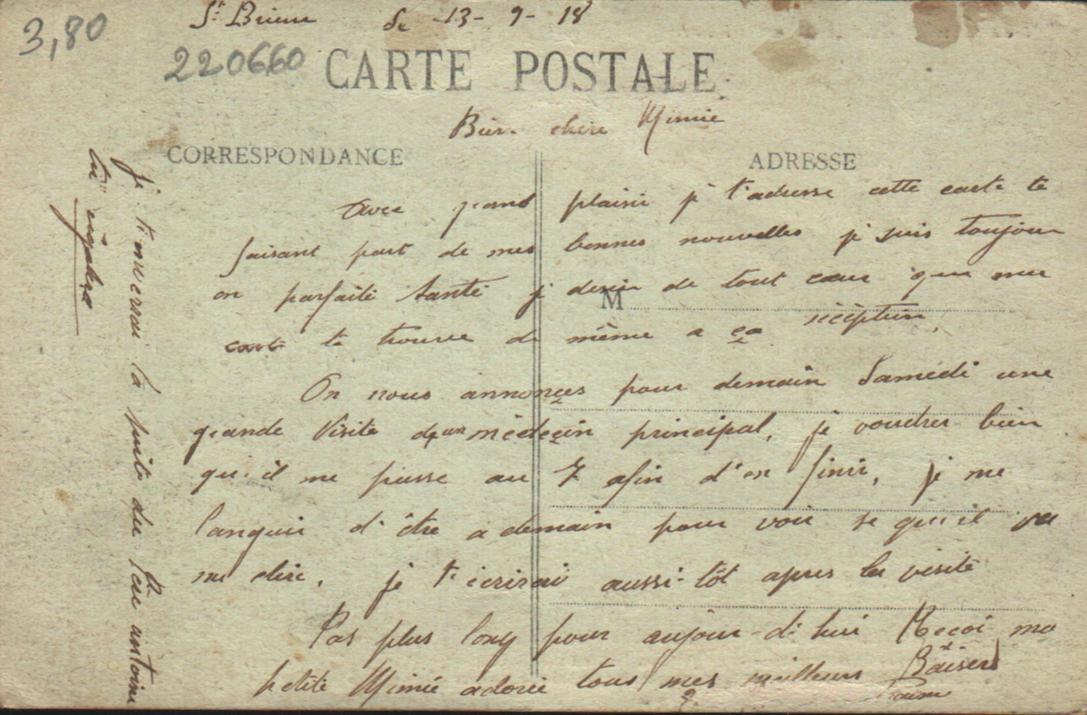 St Brieuc le 13-9-18
3,80
220660
CARTE POSTALE
Bien chère Mimie
CORRESPONDANCE
ADRESSE
Avec grand plaisir je t'adresse cette carte te
faisant part de mes bonnes nouvelles je suis toujour
en parfaite santé je desir de tout cœur que ma
M
carte te trouve de même a ça réception.
On nous annonces pour demain Samedi une
grande Visite d'un médeçin principal, je voudrer bien
qu'il me passe au 7 afin d'en finir, je me
languir d'être a demain pour voir se qu'il va
me dire. je t'écrirai aussi-tôt apres la visite
Pas plus long pour aujour-d'hui Recoi ma
petite Mimie adorée tous mes meilleurs Baisers
je t'enverrai la suite du Père antoine
tu